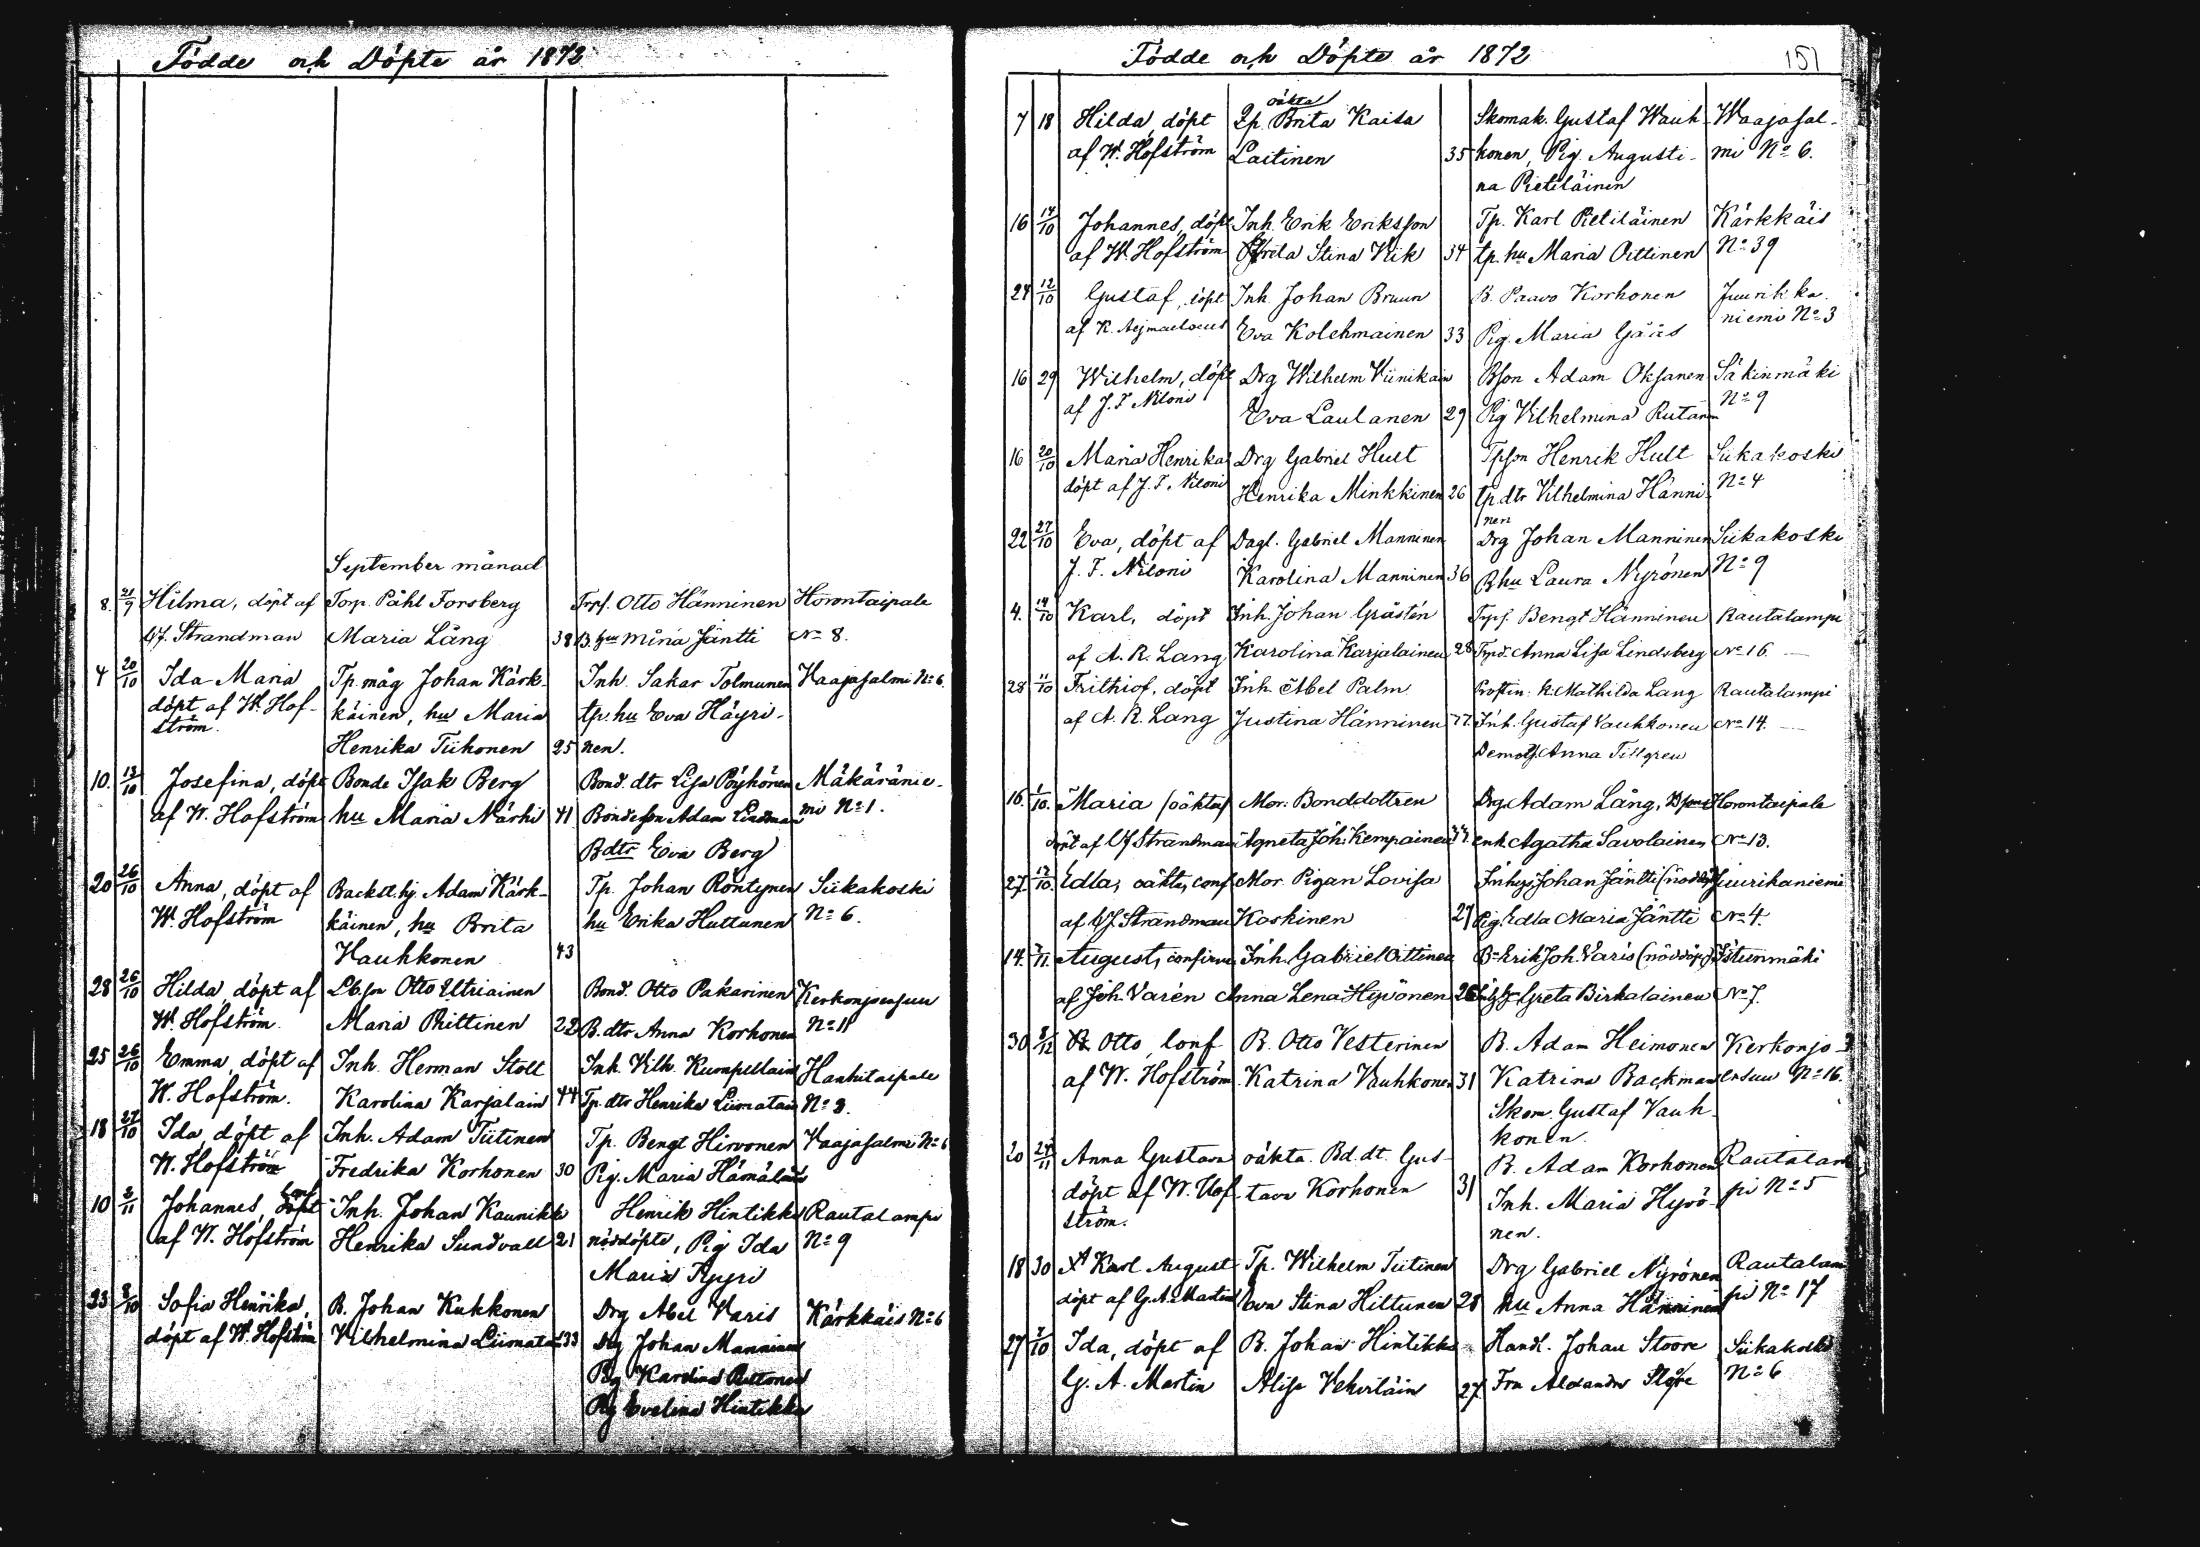 Födde och Döpte år 1872
September månad
8. 21/9 Hilma, döpt af Torp. Påhl Forsberg Trpf. Otto Hänninen Horontaipale
G. F. Strandman Maria Lång 38 B. hu Mina Jäntti No 8.
4 20/10 Ida Maria Tp. måg Johan Kärk- Inh. Sakar Tolmunen Waajasalmi No 6.
döpt af W. Hof- käinen, hu Maria tp. hu Eva Häyri-
ström. Henrika Tiihonen 25 nen.
10. 13/10 Josefina, döpt Bonde Isak Berg Bond. dtr Lisa Pöyhönen Mäkäränie-
af W. Hofström hu Maria Närhi 41 Bondeson Adam Lindman mi No 1.
Bdtr Eva Berg
20 26/10 Anna, döpt af Backst. hj. Adam Kärk- Tp. Johan Röntynen Siikakoski
W. Hofström käinen, hu Brita hu Erika Huttunen No 6.
Hauhkonen 43
28 26/10 Hilda, döpt af Lb. son Otto Utriainen Bond. Otto Pakarinen Kerkonjoensuu
W. Hofström. Maria Riittinen 22 B. dtr Anna Korhonen No 11
25 26/10 Emma, döpt af Inh. Herman Stolt Inh. Vilh. Kumpulain Hanhitaipale
W. Hofström. Karolina Karjalain 44 Tp. dtr Henrika Liimatain No 3.
18 27/10 Ida, döpt af Inh. Adam Tiitinen Tp. Bengt Hirvonen Vaajasalmi No 6
W. Hofström Fredrika Korhonen 30 Pig. Maria Hämäläin
10 2/11 Johannes, conf döpt Inh. Johan Kaunikki Henrik Hintikka Rautalampi
af W. Hofström Henrika Sundvall 21 nöddöpte, Pig Ida No 9
Maria Ryyri
23 8/10 Sofia Henrika, B. Johan Kuhkonen Drg Abel Varis Kärkkäis No 6
döpt af W. Hofström Vilhelmina Liimatai 33 Drg Johan Manninen
Pig Karolina
Pig Evelina Hintikka
Födde och Döpte år 1872 151
7 18 Hilda, döpt oäkta Skomak. Gustaf Wauh- Waajasal-
Qp. Brita Kaisa
af W. Hofström Laitinen 35 konen, Pig. Augusti- mi No 6.
na Pietiläinen
16 14/10 Johannes, döpt Inh. Erik Eriksson Tp. Karl Pietiläinen Kärkkäis
af W. Hofström Greta Stina Wik 34 tp. hu Maria Oittinen No 39
24 12/10 Gustaf, döpt Inh. Johan Bruun B. Paavo Korhonen Juurikka-
af K. Aejmaelaeus Eva Kolehmainen 33 Pig. Maria Gåås niemi No 3
16 29 Wilhelm, döpt Drg Wilhelm Viinikain Bson Adam Oksanen Säkinmäki
af J. F. Niloni Eva Laulanen 29 Pig Vilhelmina Rutanen No 9
16 20/10 Maria Henrika Drg Gabriel Hult Tpson Henrik Hult Siikakoski
döpt af J. F. Niloni Henrika Minkkinen 26 tp. dtr Vilhelmina Hänni- No 4
nen
22 27/10 Eva, döpt af Dagl. Gabriel Manninen Drg Johan Manninen Siikakoski
J. F. Niloni Karolina Manninen 36 Bhu Laura Nyrönen No 9
4. 14/10 Karl, döpt Inh. Johan Grästén Trpf. Bengt Hänninen Rautalampi
af A. R. Lang Karolina Karjalainen 28 Trpd. Anna Lisa Lindsberg No 16
28 11/10 Frithiof, döpt Inh. Abel Palm Prostin. K. Mathilda Lang Rautalampi
af A. R. Lang Justina Hänninen Inh. Gustaf Vauhkonen No 14.
Demois. Anna Tillgren
16. 1/10. Maria (oäkta) Mor: Bonddottren Drg. Adam Lång, Horontaipale
döpt af G. F. Strandman Agneta Joh. Kempainen enk Agatha Savolainen No 13.
27. 12/10. Edla, oäkta, conf Mor. Pigan Lovisa Inhys Johan Jäntti (nöddöp) Juurikaniemi
af G. F. Strandman Koskinen 27 Pig. Edla Maria Jäntti No 4.
14. August, confirm Inh. Gabriel Oittinen Bn Erik Joh. Varis (nöddöp) Istunmäki
af Joh. Varén Anna Lena Hyvönen 26 Greta Birkalainen No 7.
30 8/12 Otto, conf B. Otto Vesterinen B. Adam Heimonen Kerkonjo-
af W. Hofström Katrina Vauhkonen 31 Katrina Backman ensuu No 16.
Skom. Gustaf Vauh-
konen.
20 24/11 Anna Gustava oäkta. Bd. dt. Gus- B. Adam Korhonen Rautalam
döpt af W. Hof- tava Korhonen 31 Inh. Maria Hyvö- pi No 5
ström. nen.
18 30 Karl August Tp. Wilhelm Tiitinen Drg Gabriel Nyrönen Rautalam
döpt af G. A. Martin Eva Stina Hiltunen 28 hu Anna Hänninen pi No 17
27 Ida, döpt af B. Johan Hintikka Handl. Johan Stoore Siikakoski
G. A. Martin Alisa Vehviläin 27 Fru Alexandra Stoore No 6